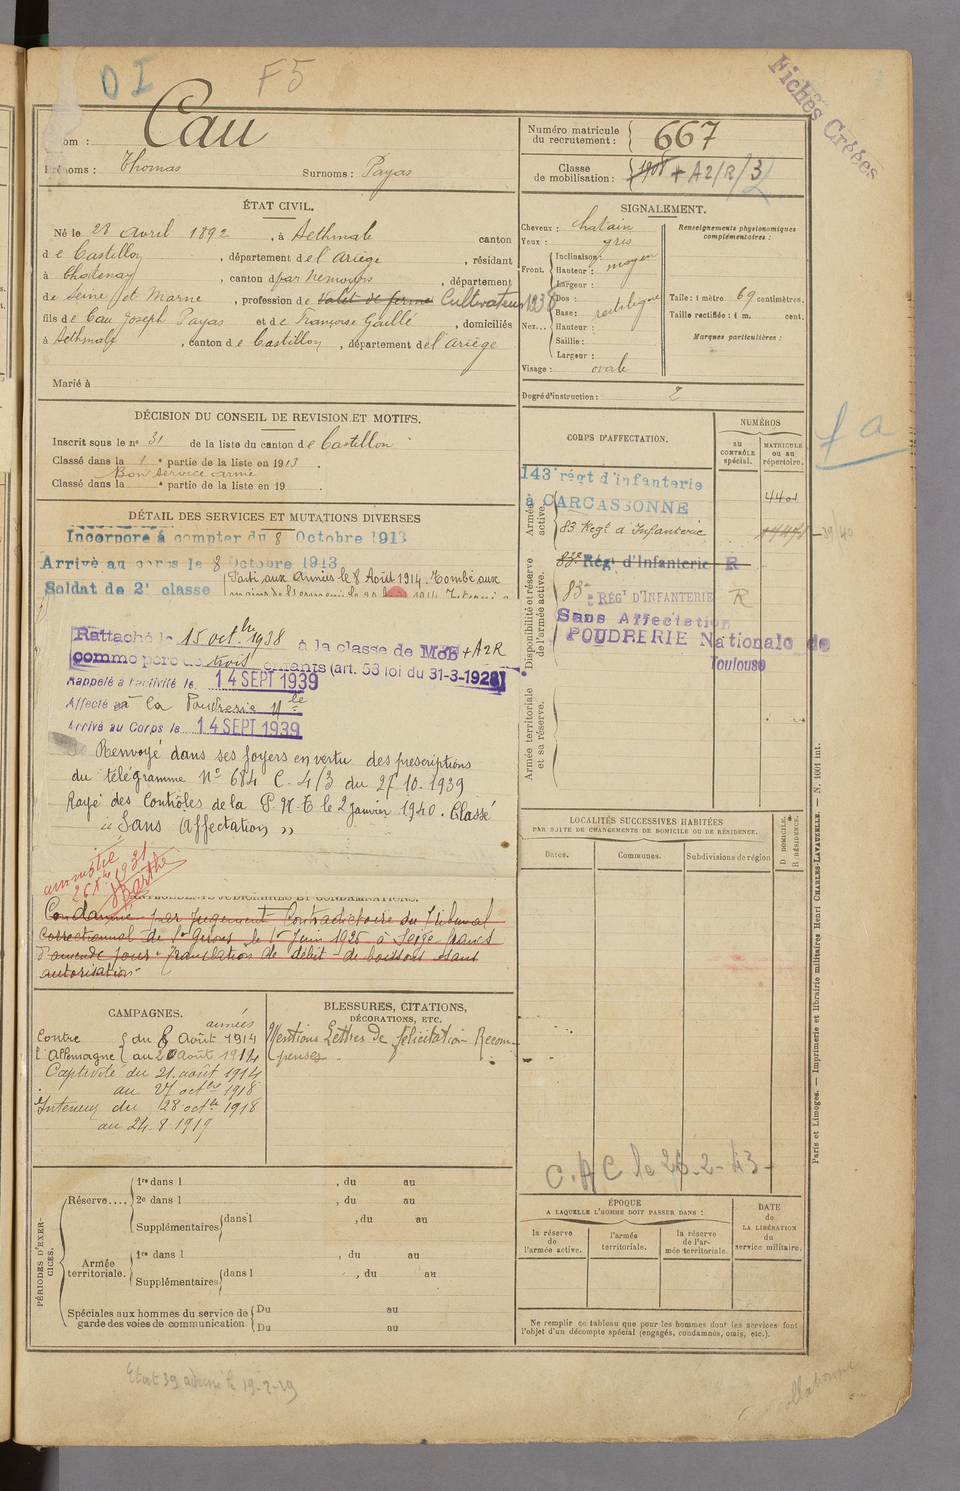 OI F5
Fichés Créées
Nom : Cau
Prénoms : Thomas Surnoms : Payas
Numéro matricule du recrutement : 667
Classe de mobilisation : 1908 + A2/R/3
ÉTAT CIVIL.
Né le 28 Avril 1892, à Sethmale canton
de Castillon, département de l'Ariège, résidant
à Chatenay, canton d par Nemours, département
de Seine et Marne, profession de Valet de ferme Cultivateur 1238
fils de Cau Joseph Payas et de Françoise Gaillé, domiciliés
à Sethmale, canton de Castillon, département de l'Ariège
Marié à
SIGNALEMENT.
Cheveux : chatain
Yeux : gris
Front. Inclinaison :
Hauteur : moyen
Largeur :
Nez... Dos :
Base : rectiligne
Hauteur :
Saillie :
Largeur :
Visage : ovale
Renseignements physionomiques complémentaires :
Taille : 1 mètre 69 centimètres.
Taille rectifiée : 1 m. cent.
Marques particulières :
Degré d'instruction : 2
DÉCISION DU CONSEIL DE REVISION ET MOTIFS.
Inscrit sous le no 31 de la liste du canton de Castillon
Classé dans la 1e partie de la liste en 1913.
Bon service armé
Classé dans la e partie de la liste en 19 .
DÉTAIL DES SERVICES ET MUTATIONS DIVERSES
Incorporé à compter du 8 Octobre 1913
Arrivé au corps le 8 Octobre 1913
Soldat de 2e classe
Parti aux Armées le 8 Août 1914. Tombé aux
Rattaché le 15 octbre 1938 à la classe de Mob + A2R
comme père de trois enfants (art. 58 loi du 31-3-1928)
Rappelé à l'activité le 14 SEPT 1939
Affecté à la Poudrerie Nle
Arrivé au Corps le 14 SEPT 1939
Renvoyé dans ses foyers en vertu des prescriptions
du télégramme No 684 C-4/3 du 27.10.1939
Rayé des Contrôles de la P.N.T. le 2 janvier 1940. Classé
"Sans Affectation"
CORPS D'AFFECTATION.
NUMÉROS
AU CONTRÔLE spécial.
MATRICULE ou au répertoire.
Armée active.
143e régt d'infanterie
à CARCASSONNE 4401
83 Regt d'Infanterie
Disponibilité et réserve de l'armée active.
83e Régt d'Infanterie R
83e RÉGt D'INFANTERIE R
Sans Affectation
POUDRERIE Nationale de
Toulouse
Armée territoriale et sa réserve.
fa
LOCALITÉS SUCCESSIVES HABITÉES
PAR SUITE DE CHANGEMENTS DE DOMICILE OU DE RÉSIDENCE.
Dates. Communes. Subdivisions de région
D DOMICILE.
R RÉSIDENCE.
amnistie
26 1931
ANTÉCÉDENTS JUDICIAIRES ET CONDAMNATIONS.
Condamné par jugement Contradictoire du Tribunal
Correctionnel de St Girons le 1er Juin 1925 à Seize francs
d'amende pour "translation de débit de boissons sans
autorisation"
CAMPAGNES.
armées
Contre l'Allemagne du 8 Août 1914
au 20 août 1914
Captivité du 21 août 1914
au 27 octbre 1918
Interné du 28 octbre 1918
au 24.8.1919
BLESSURES, CITATIONS,
DÉCORATIONS, ETC.
Mentions Lettres de félicitation Recom-
penses
C.A.C le 26-2-43-
PÉRIODES D'EXERCICES.
Réserve.... 1re dans l , du au
2e dans l , du au
Supplémentaires dans l , du au
Armée territoriale. 1re dans l , du au
Supplémentaires dans l , du au
Spéciales aux hommes du service de garde des voies de communication. Du au
Du au
ÉPOQUE
A LAQUELLE L'HOMME DOIT PASSER DANS :
la réserve de l'armée active.
l'armée territoriale.
la réserve de l'armée territoriale.
DATE de LA LIBÉRATION du service militaire.
Ne remplir ce tableau que pour les hommes dont les services font
l'objet d'un décompte spécial (engagés, condamnés, omis, etc.).
Paris et Limoges. — Imprimerie et librairie militaires Henri CHARLES-LAVAUZELLE. — N. 1001 int.